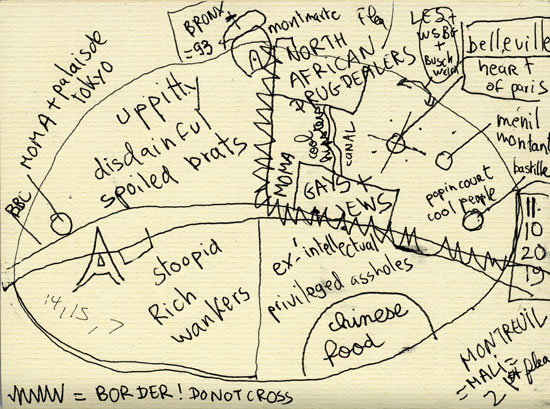 BRONX
=93
montmarte
flea
LES+
WSBG
+
BUSCH
WICK
belleville
heart
of paris
MOMA + palais de
TOKYO
BBC
uppitty
disdainful
spoiled brats
NORTH
AFRICAN
DRUG DEALERS
cool
CANAL
MOMA
GAYS +
JEWS
ménil
montant
bastille
popincourt
cool people
11.
10
20
19
stoopid
Rich
wankers
14, 15, 7
ex-intellectual
privileged assholes
chinese
food
MONTREUIL
=MALI=
flea
= BORDER! DO NOT CROSS